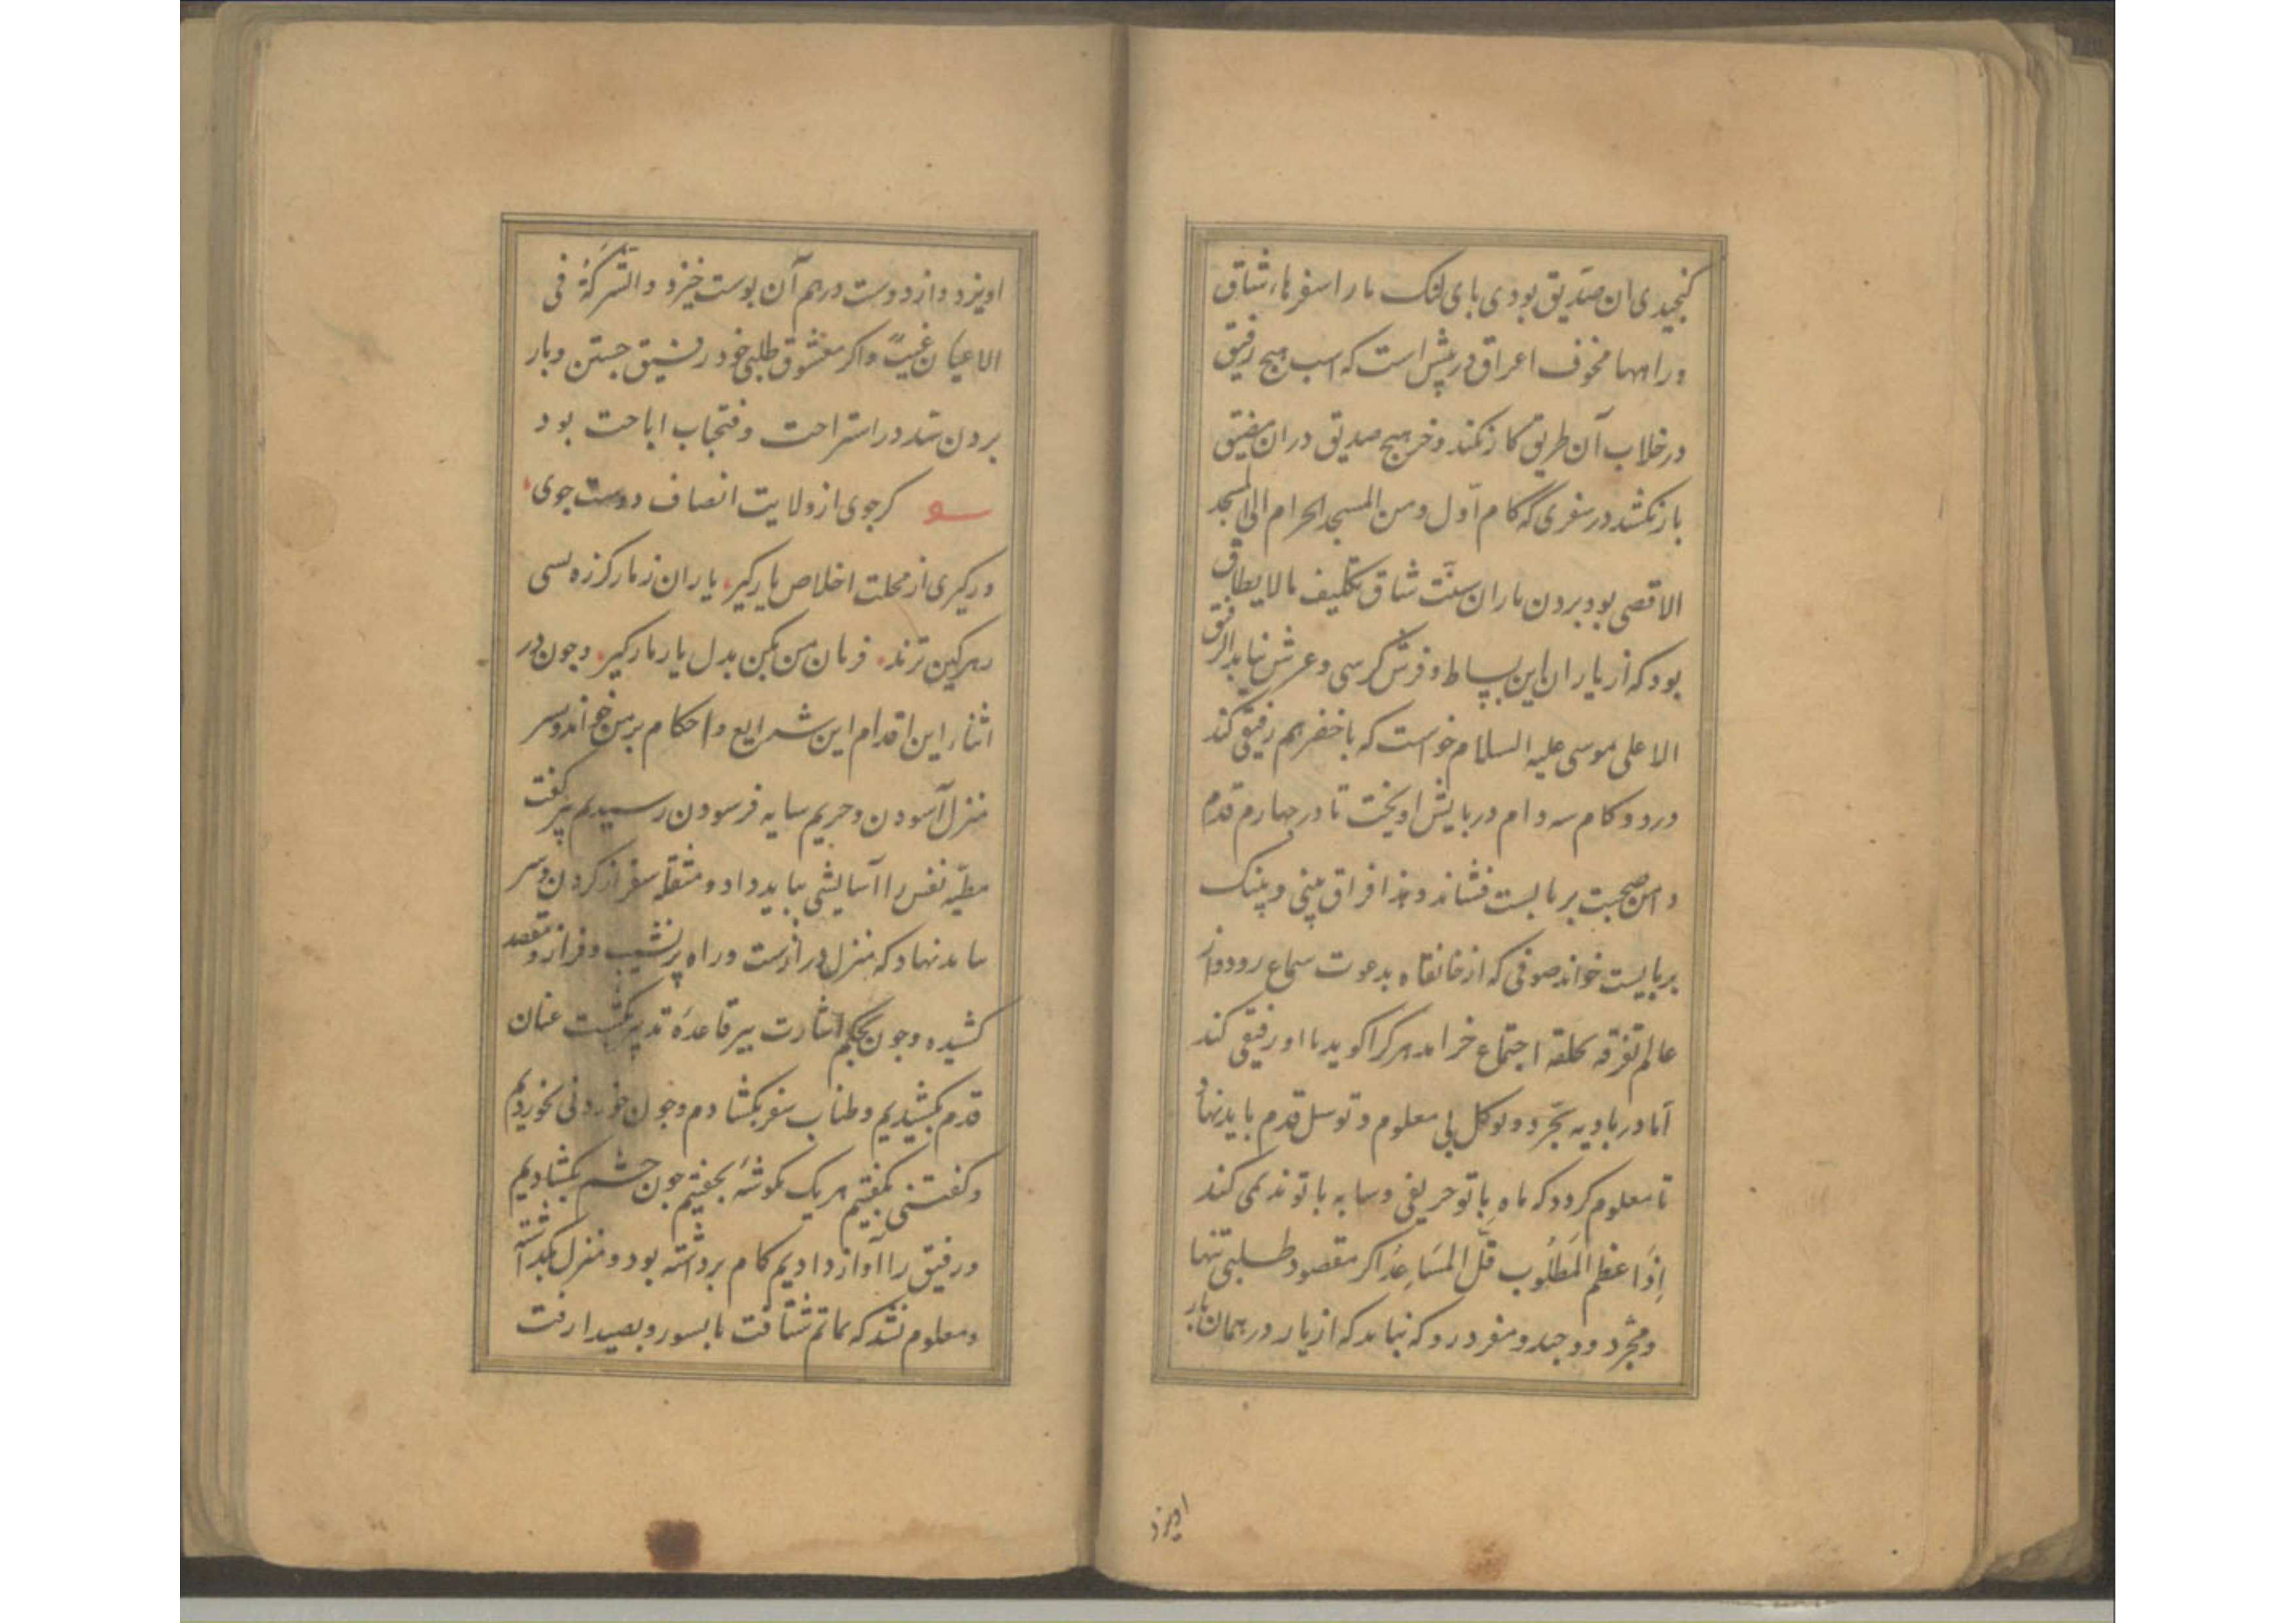 کنجیدی ان صدیق بودی بابی لنک ما را سفرهاء شاق
و راهها مخوف اعراق در پیش است که اسب هیچ رفیق
در خلاب آن طریق کار نکند و خر هیچ صدیق در ان مضیق
بار نکشد در سفری که کام اول و من المسجد الحرام الی المسجد
الاقصی بود بردن یاران سنت شاق تکلیف مالایطاق
بود که از یاران این بساط و فرش کرسی و عرش نیاید الرفیق
الاعلی موسی علیه السلام خواست که با خضر هم رفیقی کند
در دو کام سه دام در پایش اویخت تا در چهارم قدم
دامن صحبت بر بایست فشاند و هذا فراق بینی و بینک
بر بایست خواند صوفی که از خانقاه بدعوت سماع رود و از
عالم تفرقه بحلقه اجتماع خرامد هر کرا کوید با او رفیقی کند
اما در بادیه تجرد و توکل بی معلوم و توسل قدم باید نهاد
تا معلوم کردد که ماه با تو حریفی و سایه با تو ندیمی کند
اِذَا عظم المَطلُوب قلّ المسَاعِد اکر مقصود طلبی تنها
و مجرد و وحید و منفرد رو که نباید که از یار در همان بار
اویزد
اویزد و از دوست در هم آن بوست خیزد و الشرکة فی
الاعیان عیبٌ و اکر معشوق طلبی خود رفیق جستن و یار
بردن سد در استراحت و فتح باب اباحت بود
کر جوی از ولایت انصاف دوست جوی
ور کیری از محلت اخلاص یار کیر یاران ز مار کرزه بسی
زهرکین ترند فرمان من بکن بدل یار مار کیر و چون در
اثناء این اقدام این شرایع و احکام بر من خواند و بسر
منزل آسودن و حریم سایه فرسودن رسیدیم پیر کفت
مطیّه نفس را آسایشی بباید داد و مثقله سفر از کردن و سر
باید نهاد که منزل درازست و راه پر نشیب و فراز و مقصد
کشیده و چون بحکم اشارت پیر قاعدهٔ تدبیر بکشت عنان
قدم بکشیدیم و طناب سفر بکشادم و چون خوردنی بخوردیم
و کفتنی بکفتیم هر یک بکوشهٔ بخفتیم چون چشم بکشادیم
و رفیق را آواز دادیم کام برداشته بود و منزل بگذاشته
و معلوم نشد که بماتم شتافت یا بسور و بصید رفت